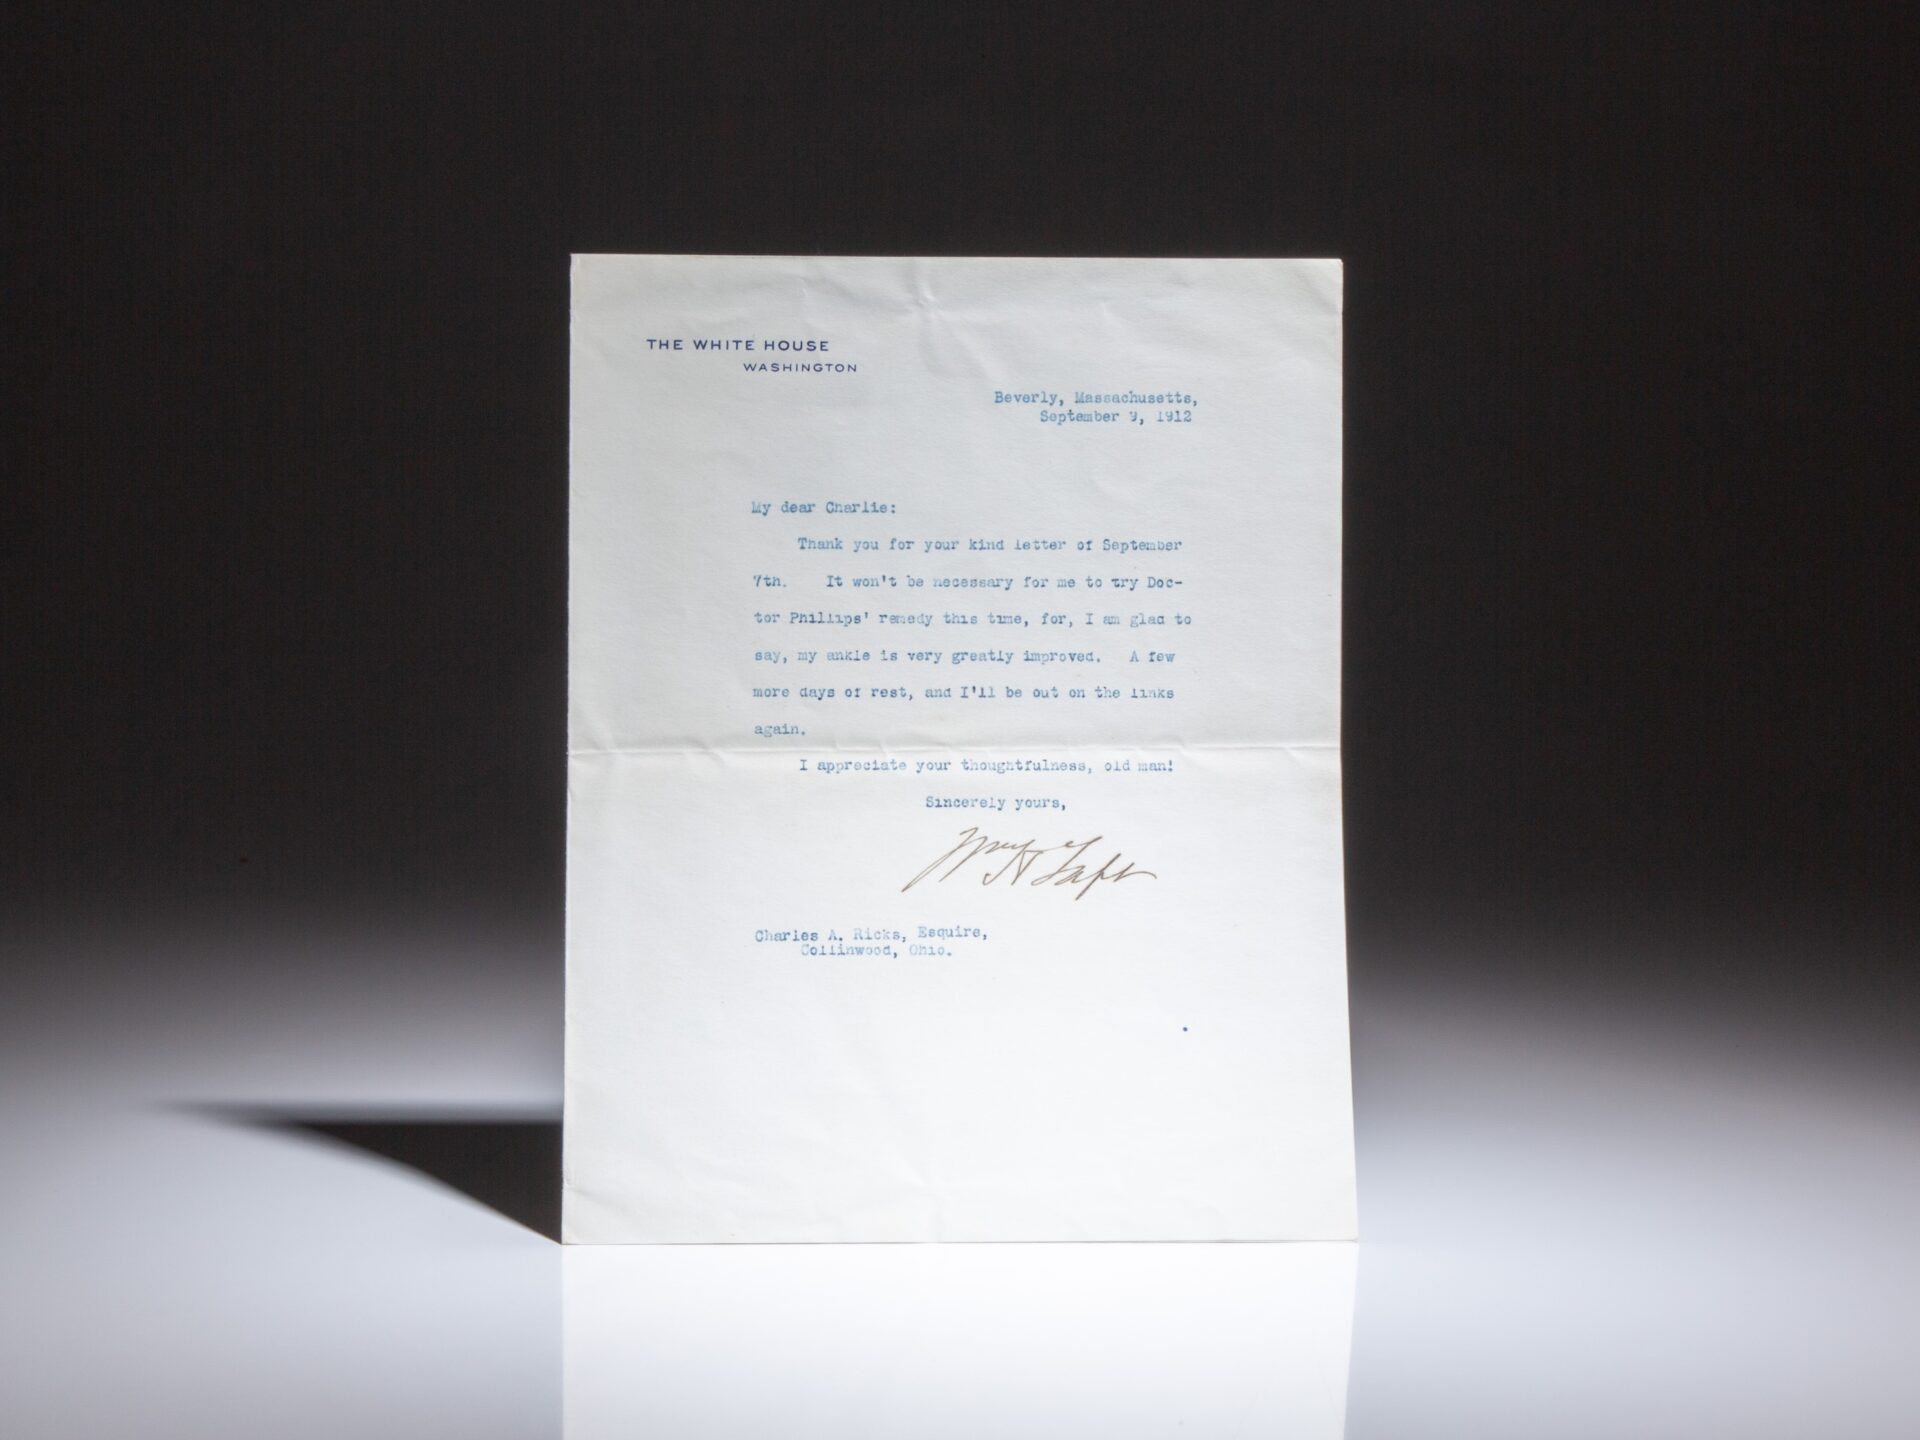 THE WHITE HOUSE
WASHINGTON
Beverly, Massachusetts,
September 9, 1912
My dear Charlie:
Thank you for your kind letter of September
7th. It won't be necessary for me to try Doc-
tor Phillips' remedy this time, for, I am glad to
say, my ankle is very greatly improved. A few
more days of rest, and I'll be out on the links
again.
I appreciate your thoughtfulness, old man!
Sincerely yours,
Wm H Taft
Charles A. Ricks, Esquire,
Collinwood, Ohio.